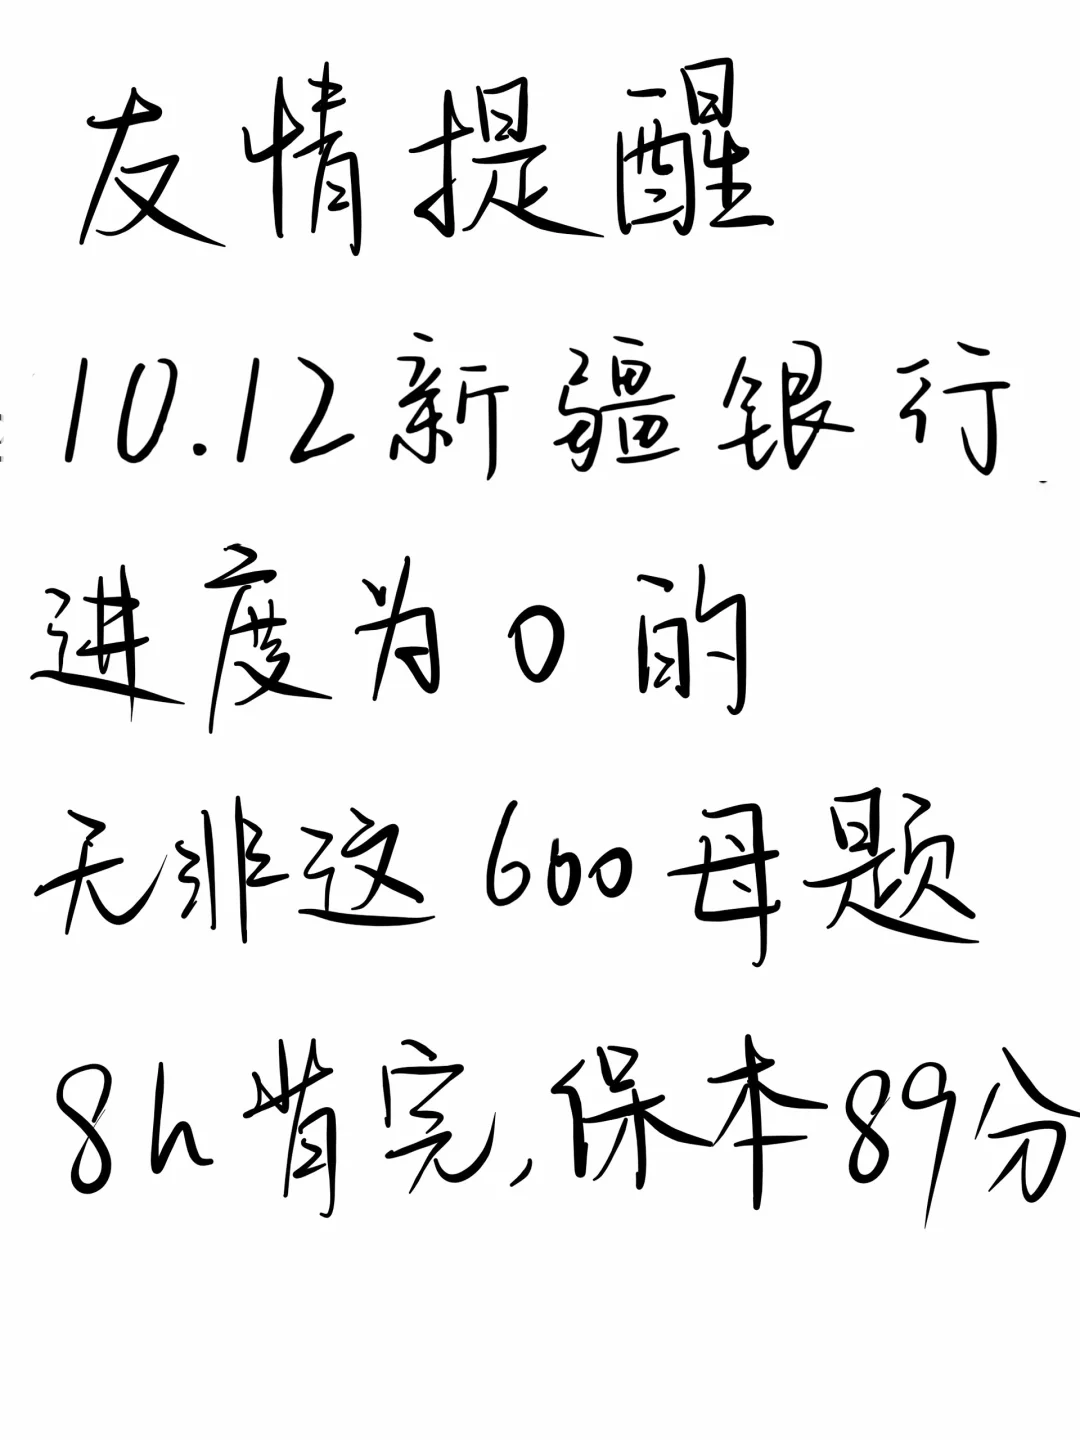 友情提醒
10.12新疆银行
进度为0的
无非这600母题
8h背完,保本89分